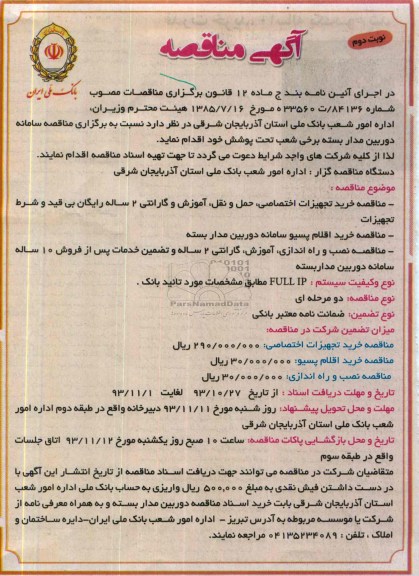 نوبت دوم
آگهی مناقصه
بانک ملی ایران
در اجرای آئین نامه بند ج ماده ۱۲ قانون برگزاری مناقصات مصوب
شماره ۸۴۱۳۶/ت ۳۳۵۶۰ مورخ ۱۳۸۵/۷/۱۶ هیئت محترم وزیران،
اداره امور شعب بانک ملی استان آذربایجان شرقی در نظر دارد نسبت به برگزاری مناقصه سامانه
دوربین مدار بسته برخی شعب تحت پوشش خود اقدام نماید.
لذا از کلیه شرکت های واجد شرایط دعوت می گردد تا جهت تهیه اسناد مناقصه اقدام نمایند.
دستگاه مناقصه گزار : اداره امور شعب بانک ملی استان آذربایجان شرقی
موضوع مناقصه :
- مناقصه خرید تجهیزات اختصاصی، حمل و نقل، آموزش و گارانتی ۲ ساله رایگان بی قید و شرط
تجهیزات
- مناقصه خرید اقلام پسیو سامانه دوربین مدار بسته
- مناقصه نصب و راه اندازی، آموزش، گارانتی ۲ ساله و تضمین خدمات پس از فروش ۱۰ ساله
سامانه دوربین مداربسته
نوع وکیفیت سیستم : FULL IP مطابق مشخصات مورد تائید بانک .
ParsNamadData
نوع مناقصه: دو مرحله ای
نوع تضمین: ضمانت نامه معتبر بانکی
میزان تضمین شرکت در مناقصه:
مناقصه خرید تجهیزات اختصاصی: ۲۹۰/۰۰۰/۰۰۰ ریال
مناقصه خرید اقلام پسیو: ۳۰/۰۰۰/۰۰۰ ریال
مناقصه نصب و راه اندازی: ۳۰/۰۰۰/۰۰۰ ریال
تاریخ و مهلت دریافت اسناد : از تاریخ ۹۳/۱۰/۲۷ لغایت ۹۳/۱۱/۱
مهلت و محل تحویل پیشنهاد: روز شنبه مورخ ۹۳/۱۱/۱۱ دبیرخانه واقع در طبقه دوم اداره امور
شعب بانک ملی استان آذربایجان شرقی
تاریخ و محل بازگشایی پاکات مناقصه: ساعت ۱۰ صبح روز یکشنبه مورخ ۹۳/۱۱/۱۲ اتاق جلسات
واقع در طبقه سوم
متقاضیان شرکت در مناقصه می توانند جهت دریافت اسناد مناقصه از تاریخ انتشار این آگهی با
در دست داشتن فیش نقدی به مبلغ ۵۰۰,۰۰۰ ریال واریزی به حساب بانک ملی اداره امور شعب
استان آذربایجان شرقی بابت خرید اسناد مناقصه دوربین مدار بسته و به همراه معرفی نامه از
شرکت یا موسسه مربوطه به آدرس تبریز - اداره امور شعب بانک ملی ایران-دایره ساختمان و
املاک ، تلفن : ۰۴۱۳۵۲۳۴۰۸۹ مراجعه نمایند.